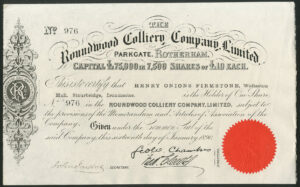 THE
Roundwood Colliery Company, Limited.
PARKGATE, ROTHERHAM.
CAPITAL £75,000 IN 7,500 SHARES OF £10 EACH.
No. 976
This is to certify that HENRY ONIONS FIRMSTONE, Wollaston
Hall, Stourbridge, is the Holder of One Share
No. 976 in the ROUNDWOOD COLLIERY COMPANY, LIMITED, subject to
the provisions of the Memorandum and Articles of Association of the
Company. Given under the Common Seal of the
said Company, this sixteenth day of January 1890.
SECRETARY.